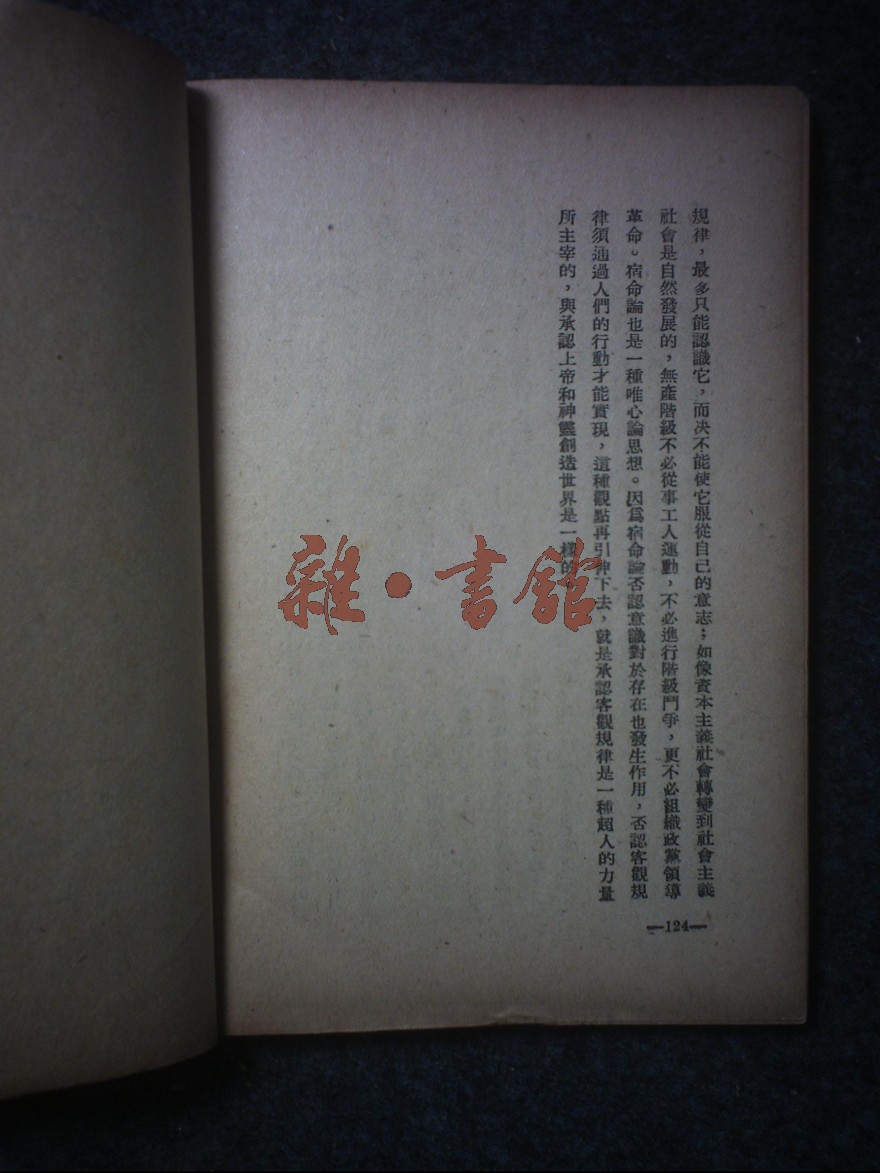 規律，最多只能認識它，而决不能使它服從自己的意志；如像資本主義社會轉變到社會主義
社會是自然發展的，無產階級不必從事工人運動，不必進行階級鬥爭，更不必組織政黨領導
革命。宿命論也是一種唯心論思想。因爲宿命論否認意識對於存在也發生作用，否認客觀規
律須通過人們的行動才能實現，這種觀點再引伸下去，就是承認客觀規律是一種超人的力量
所主宰的，與承認上帝和神靈創造世界是一樣的。
—124—
雜·書館